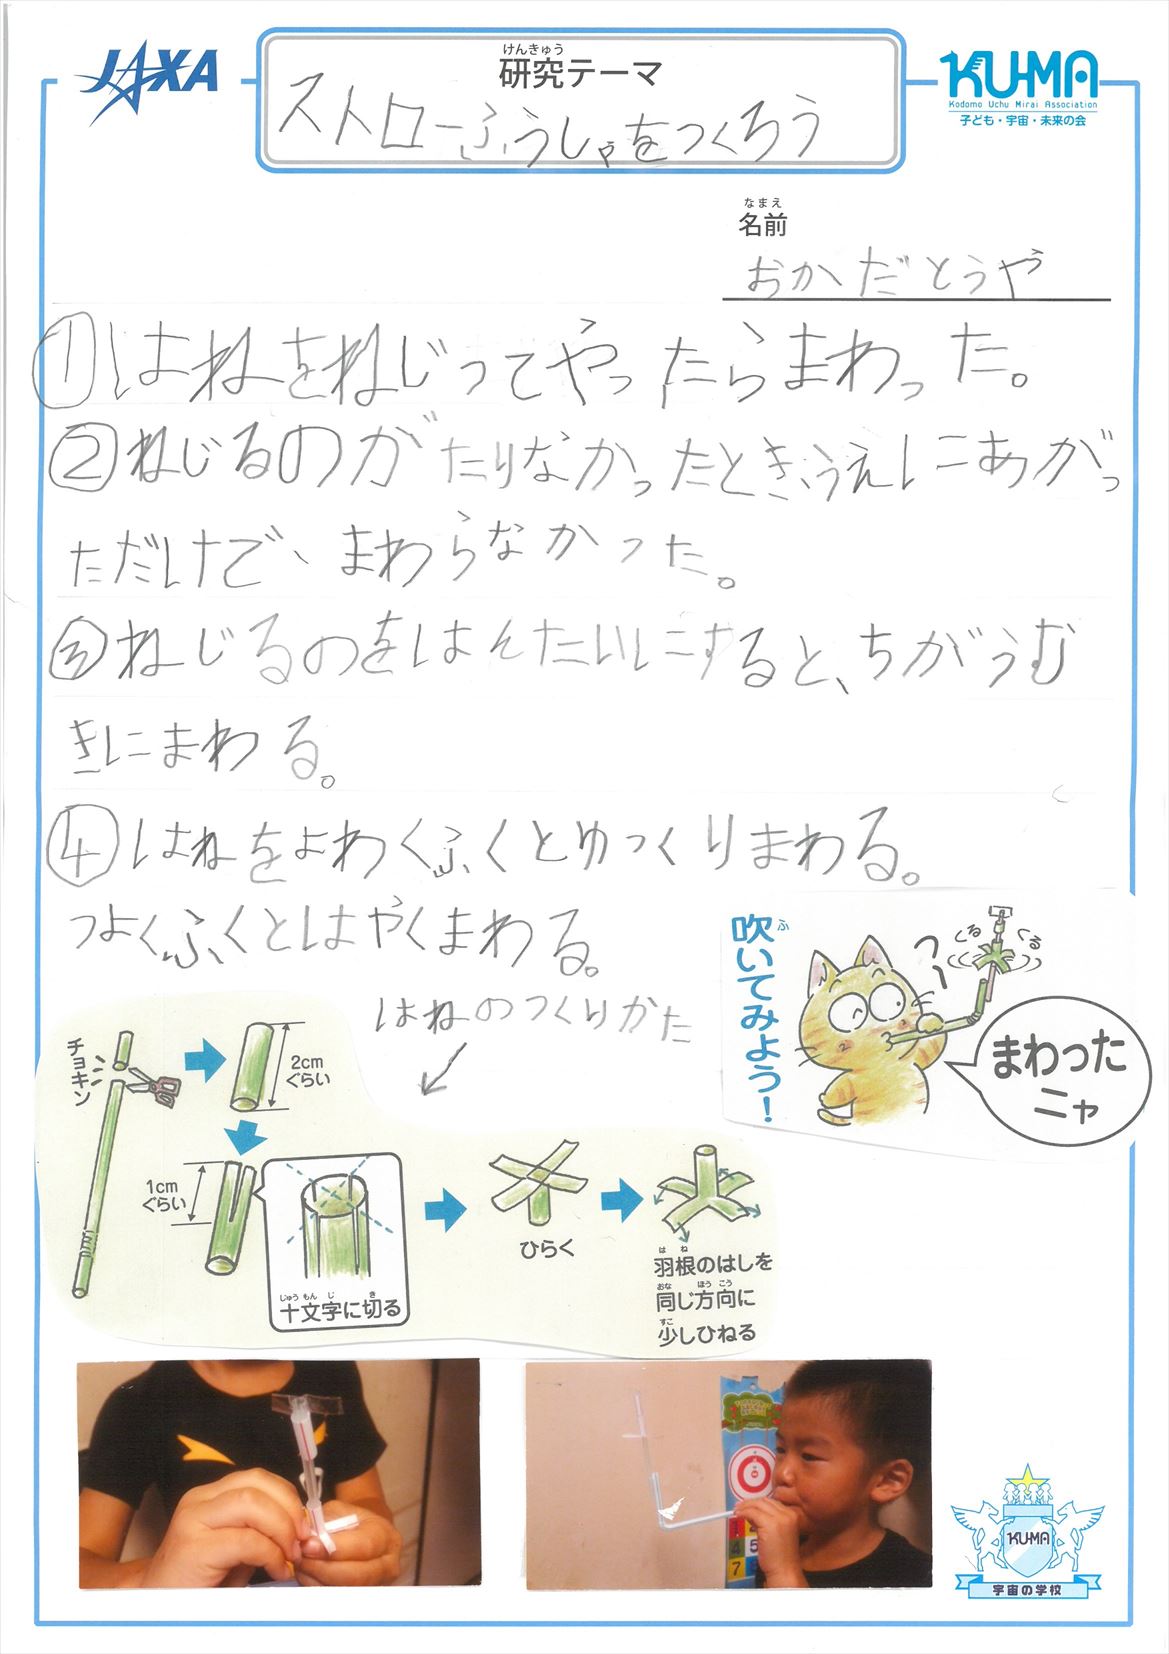 JAXA
けんきゅう
研究テーマ
ストローふうしゃをつくろう
KU-MA
Kodomo Uchu Mirai Association
子ども・宇宙・未来の会
なまえ
名前
おかだとうや
①はねをねじってやったらまわった。
②ねじるのがたりなかったとき、うえにあがっ
ただけで、まわらなかった。
③ねじるのをはんたいにすると、ちがうむ
きにまわる。
④はねをよわくふくとゆっくりまわる。
つよくふくとはやくまわる。
はねのつくりかた
ふ
吹いてみよう!
フー
くる
くる
まわった
ニャ
チョキン
2cm
ぐらい
1cm
ぐらい
じゅうもんじ き
十文字に切る
ひらく
はね
羽根のはしを
おな ほうこう
同じ方向に
すこ
少しひねる
4 5
7
KU-MA
宇宙の学校